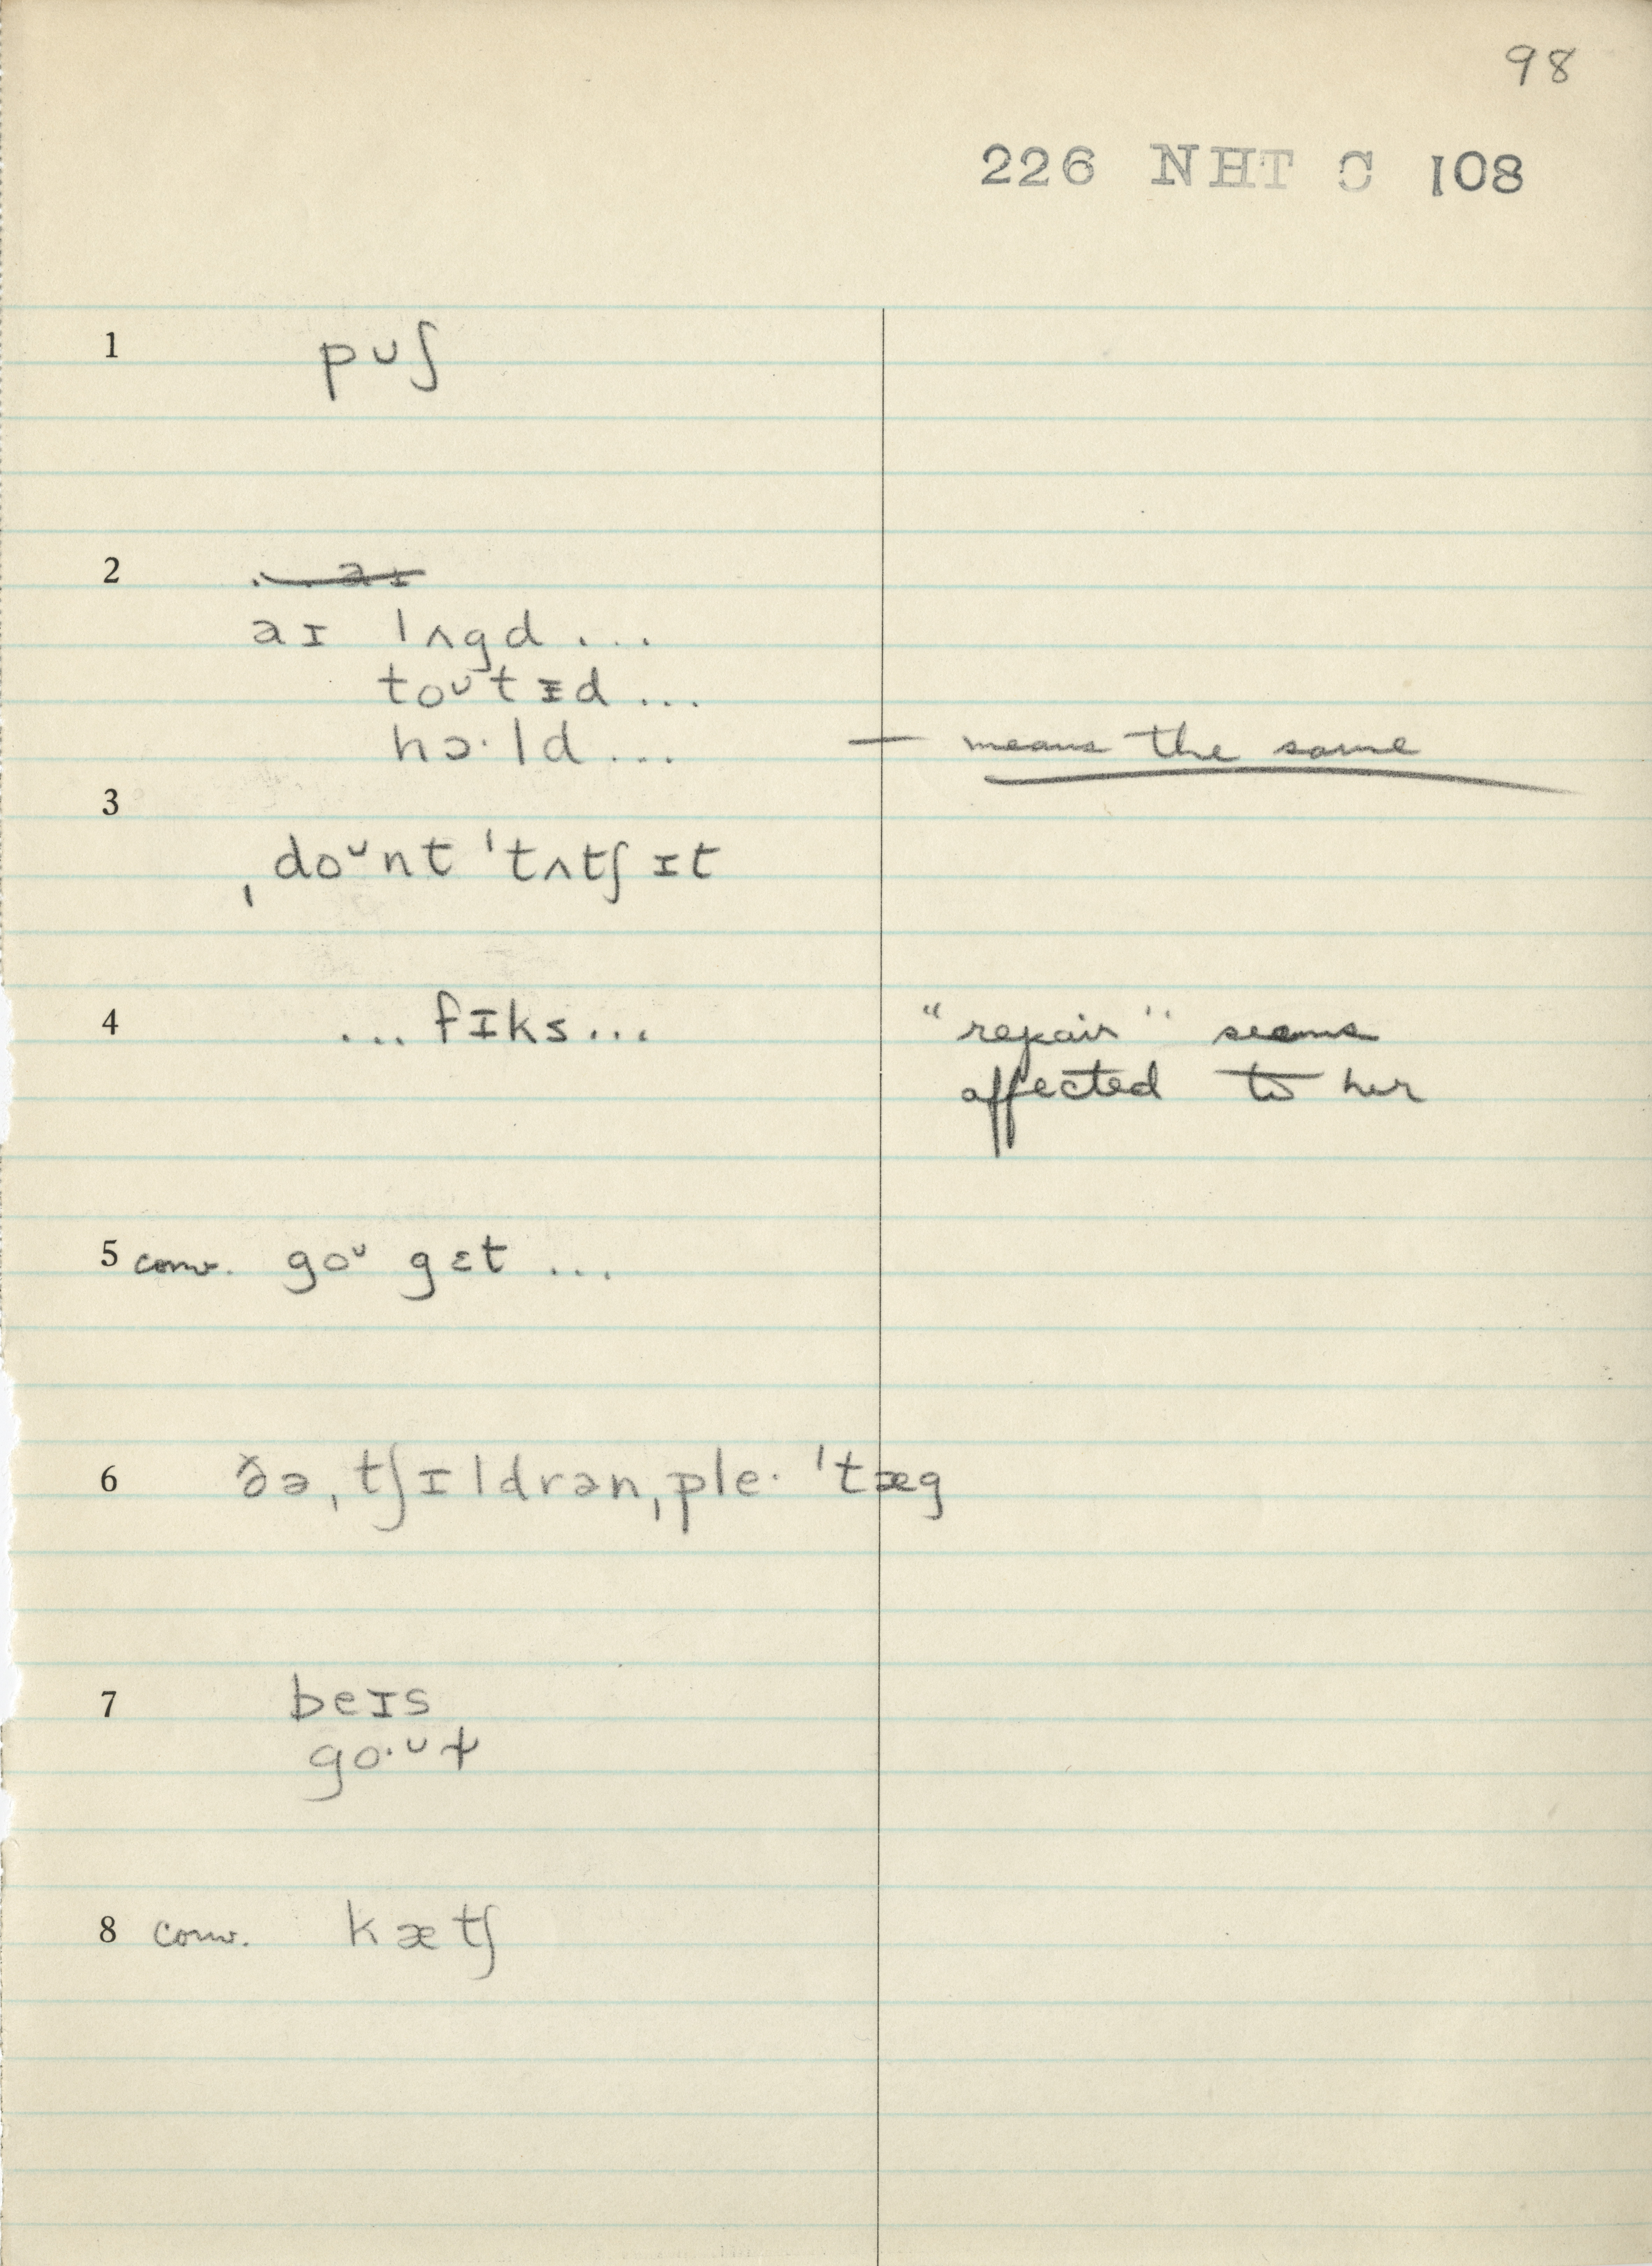 98
226 NHT C 108
1 pᴜʃ
2
aɪ lʌgd ...
toᴜtɪd ...
hɔ·ld ... — means the same
3
ˌdoᴜnt ˈtʌtʃ ɪt
4 ... fɪks ... "repair" seems
affected to her
5 conv. goᴜ gɛt ...
6 ðə ˌtʃɪldrən ˌple· ˈtæg
7 beɪs
go·ᴜɫ
8 conv. kætʃ